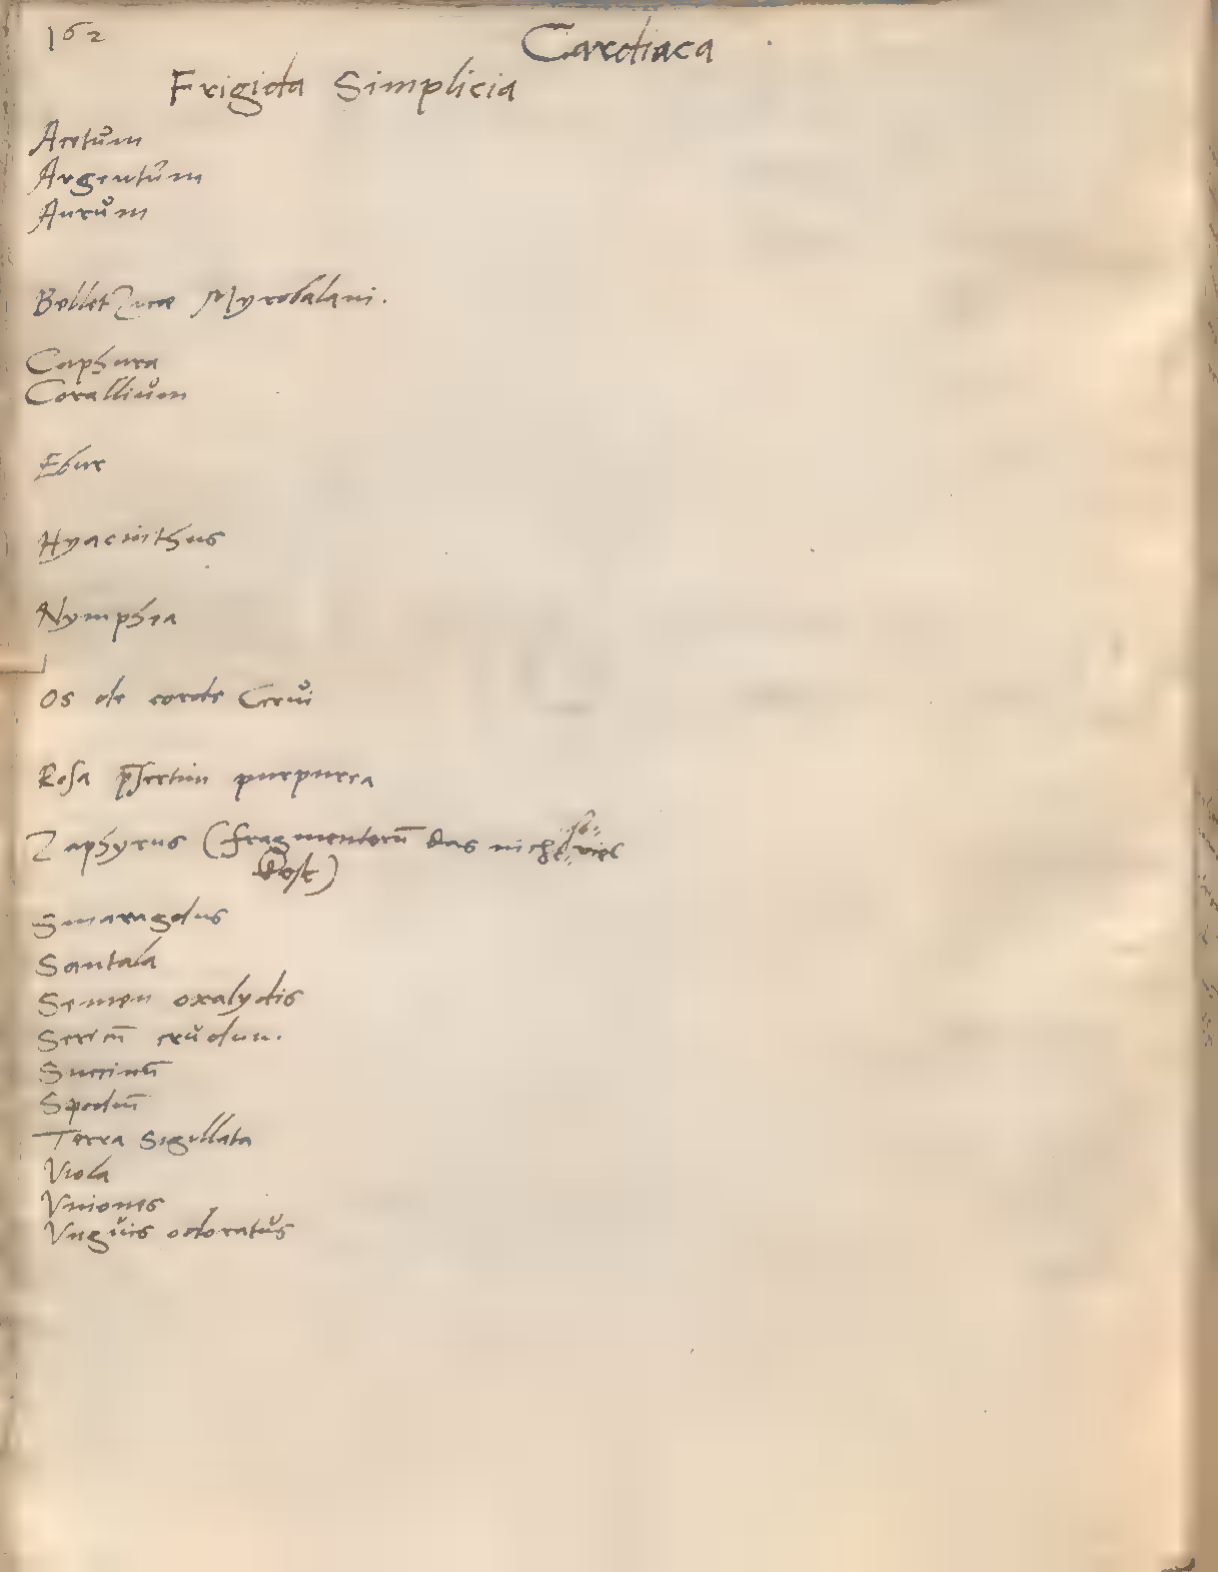 162
Cardiaca
Frigida Simplicia
Acetum
Argentum
Aurum
Belletzicæ Myrobalani.
Caphura
Corallium
Ebur
Hyacinthus
Nymphea
Os de corde Cerui
Rosa p̄sertim purpurea
Zaphyrus (fragmentorū das nicht so viel
kost)
Smaragdus
Santala
Semen oxalydis
crudum.
Succinū
Spodiū
Terra Sigillata
Viola
Vniones
Vnguis odoratus